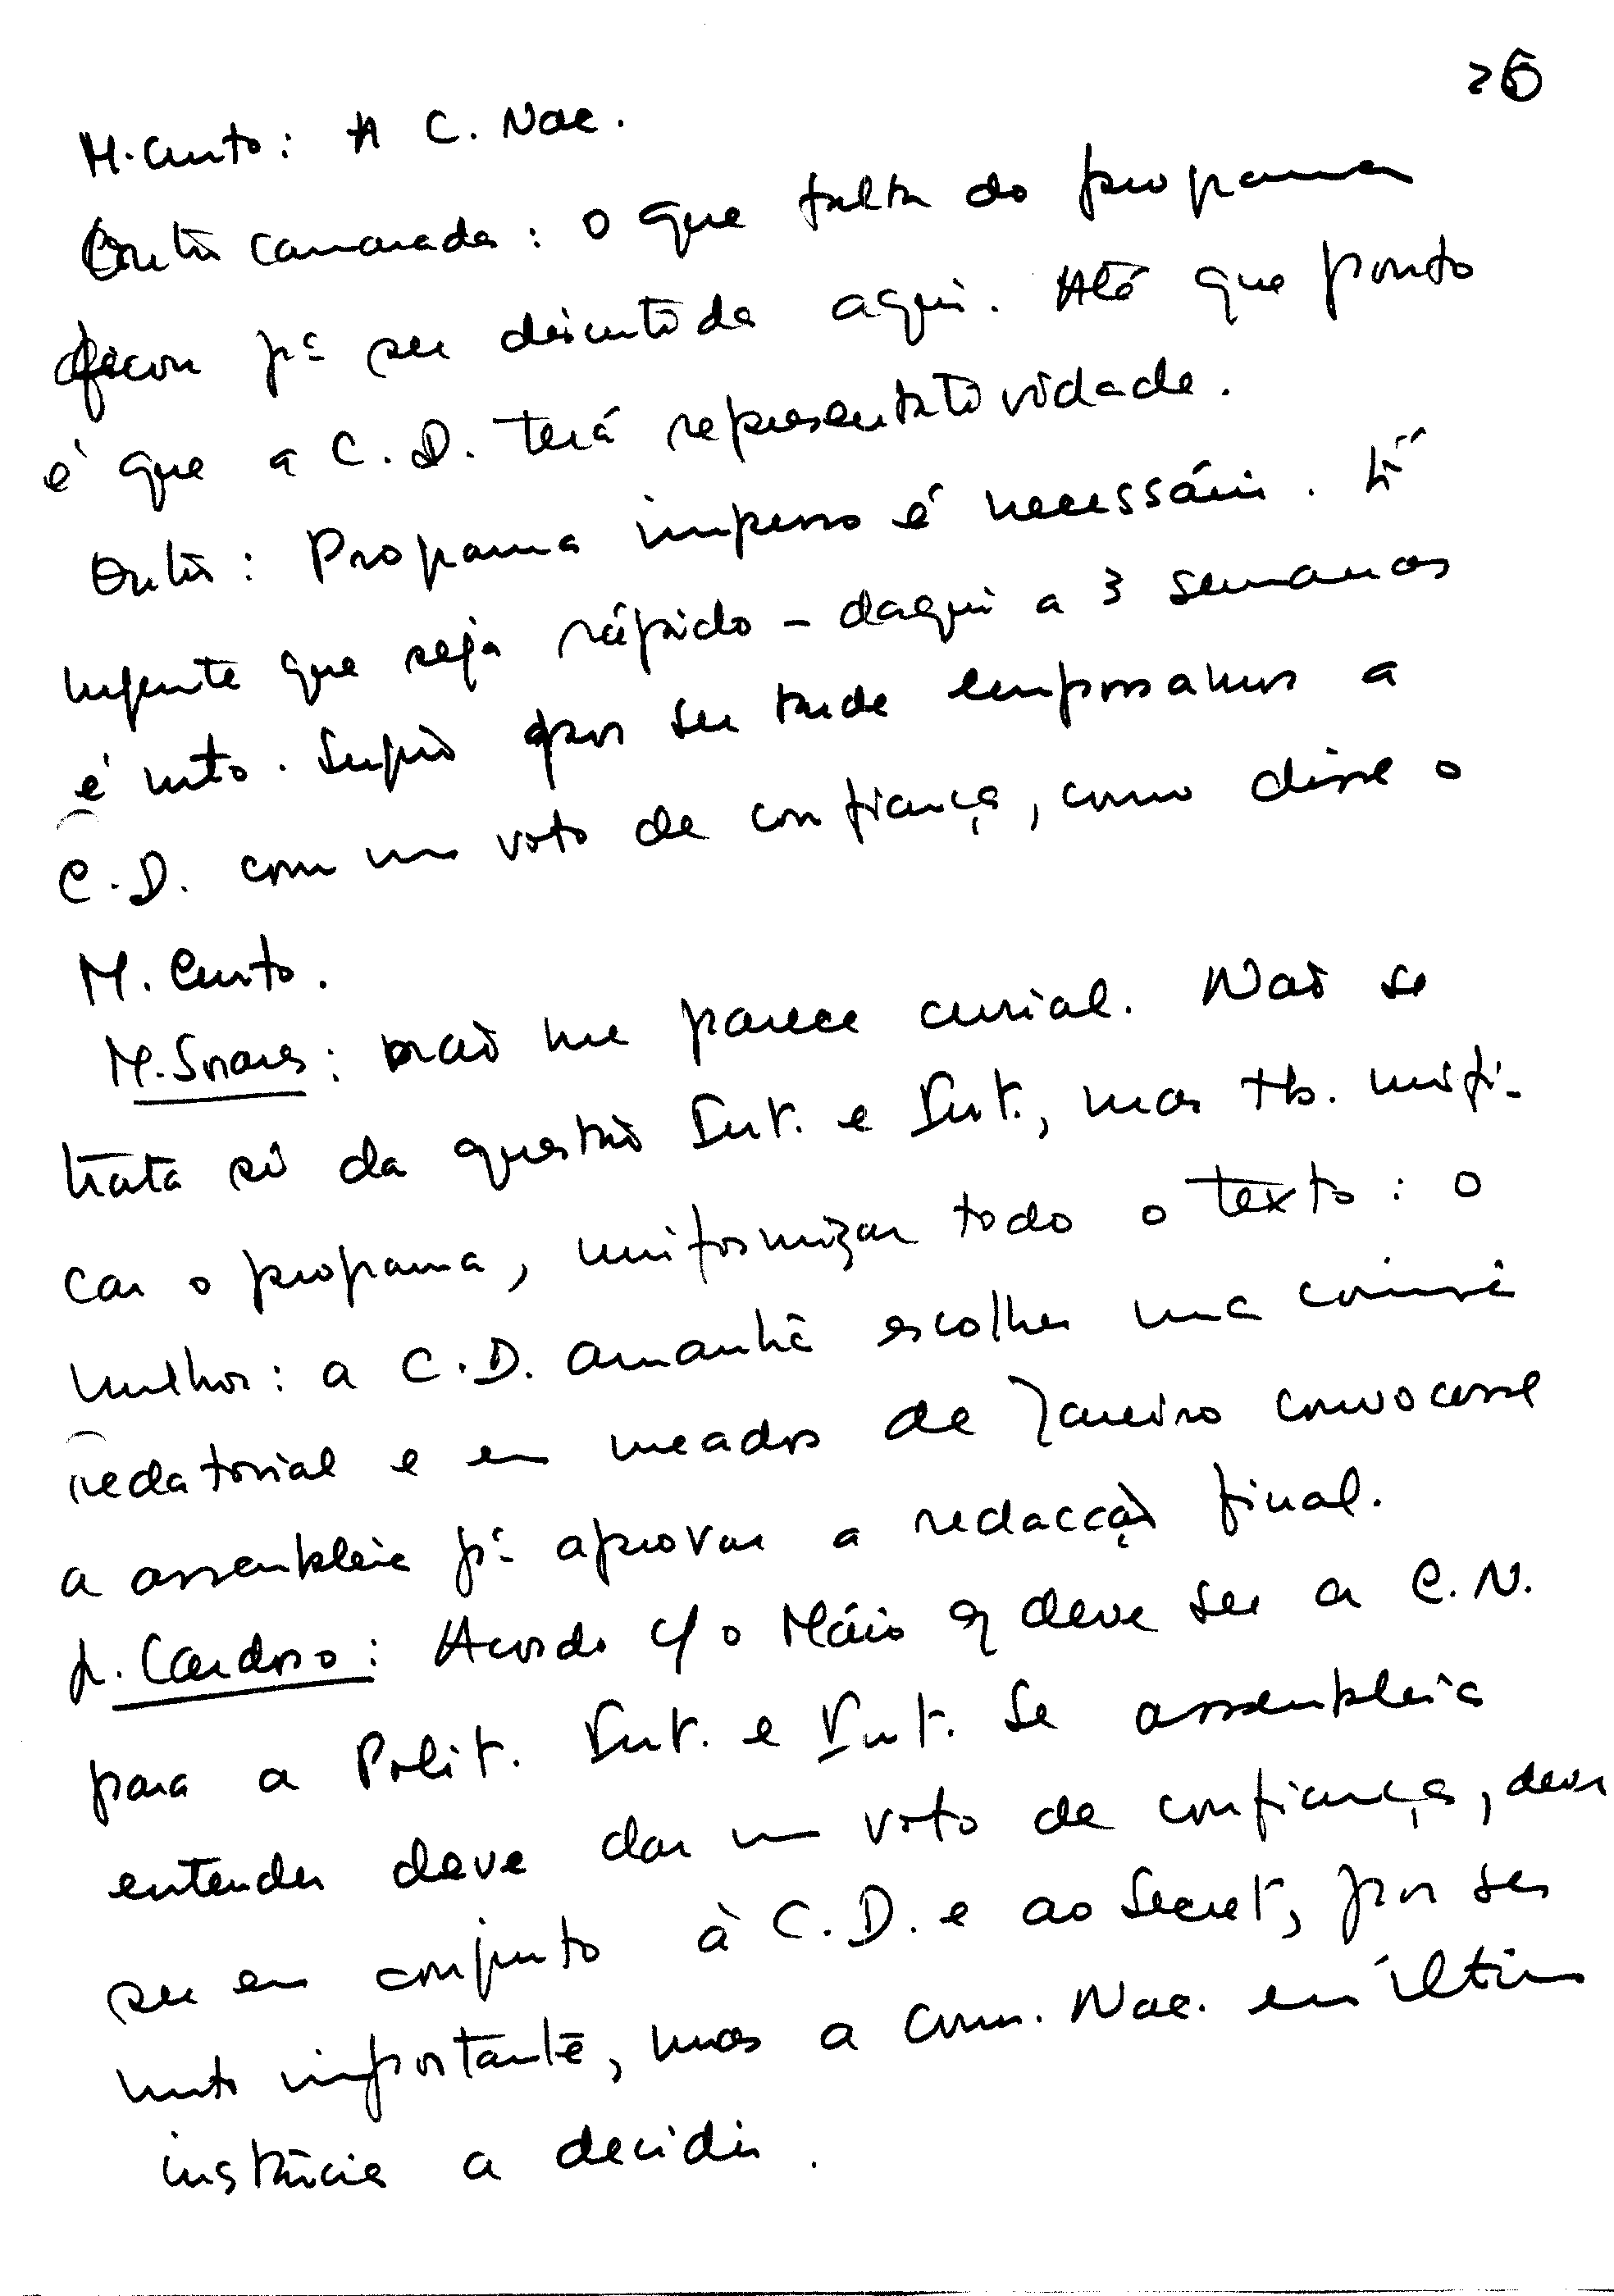 26
M. Curto: A C. Nac.
Outro camarada: o que falta do programa
ficou pª ser discutida aqui. Até que ponto
é que a C.D. terá representatividade.
Outro: Programa impresso é necessário. É
urgente que seja rápido - daqui a 3 semanas
é mto. Sugiro por ser tarde empossamos a
C.D. com um voto de confiança, como disse o
M. Curto.
M. Soares: não me parece curial. Não se
trata só da questão Int. e Int., mas tb. unifi-
car o programa, uniformizar todo o texto: o
melhor: a C.D. amanhã escolher uma comissã
redatorial e em meados de Janeiro convocasse
a assembleia pª aprovar a redacção final.
L. Cardoso: Acordo c/ o Mário q deve ser a C.N.
para a Polit. Int. e Int. Se assembleia
entender deve dar um voto de confiança, deve
ser em conjunto à C.D. e ao Secret, por ser
mto importante, mas a Com. Nac. em última
instância a decidir.